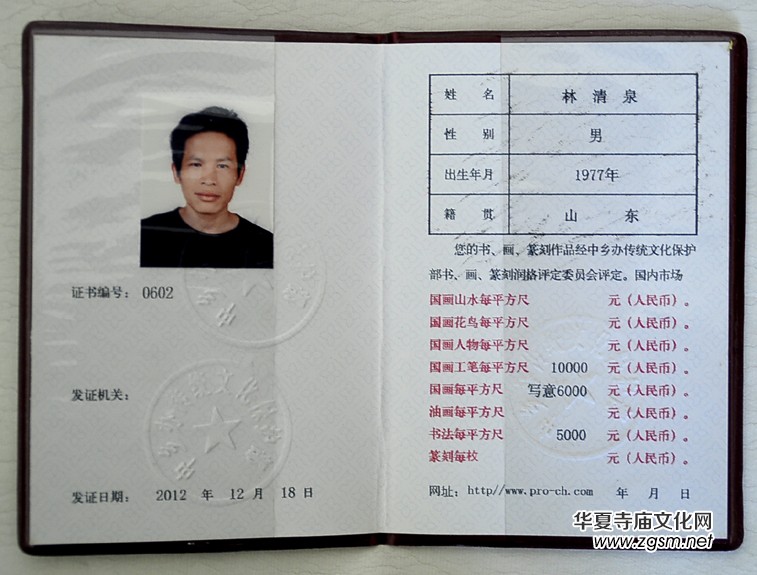 证书编号： 0602
发证机关：
发证日期： 2012 年 12 月 18 日
姓 名 林 清 泉
性 别 男
出生年月 1977年
籍 贯 山 东
您的书、画、篆刻作品经中乡办传统文化保护
部书、画、篆刻润格评定委员会评定。国内市场
国画山水每平方尺 元（人民币）。
国画花鸟每平方尺 元（人民币）。
国画人物每平方尺 元（人民币）。
国画工笔每平方尺 10000 元（人民币）。
国画每平方尺 写意6000 元（人民币）。
油画每平方尺 元（人民币）。
书法每平方尺 5000 元（人民币）。
篆刻每校 元（人民币）。
网址：http//www.pro-ch.com 年 月 日
华夏寺庙文化网
www.zgsm.net